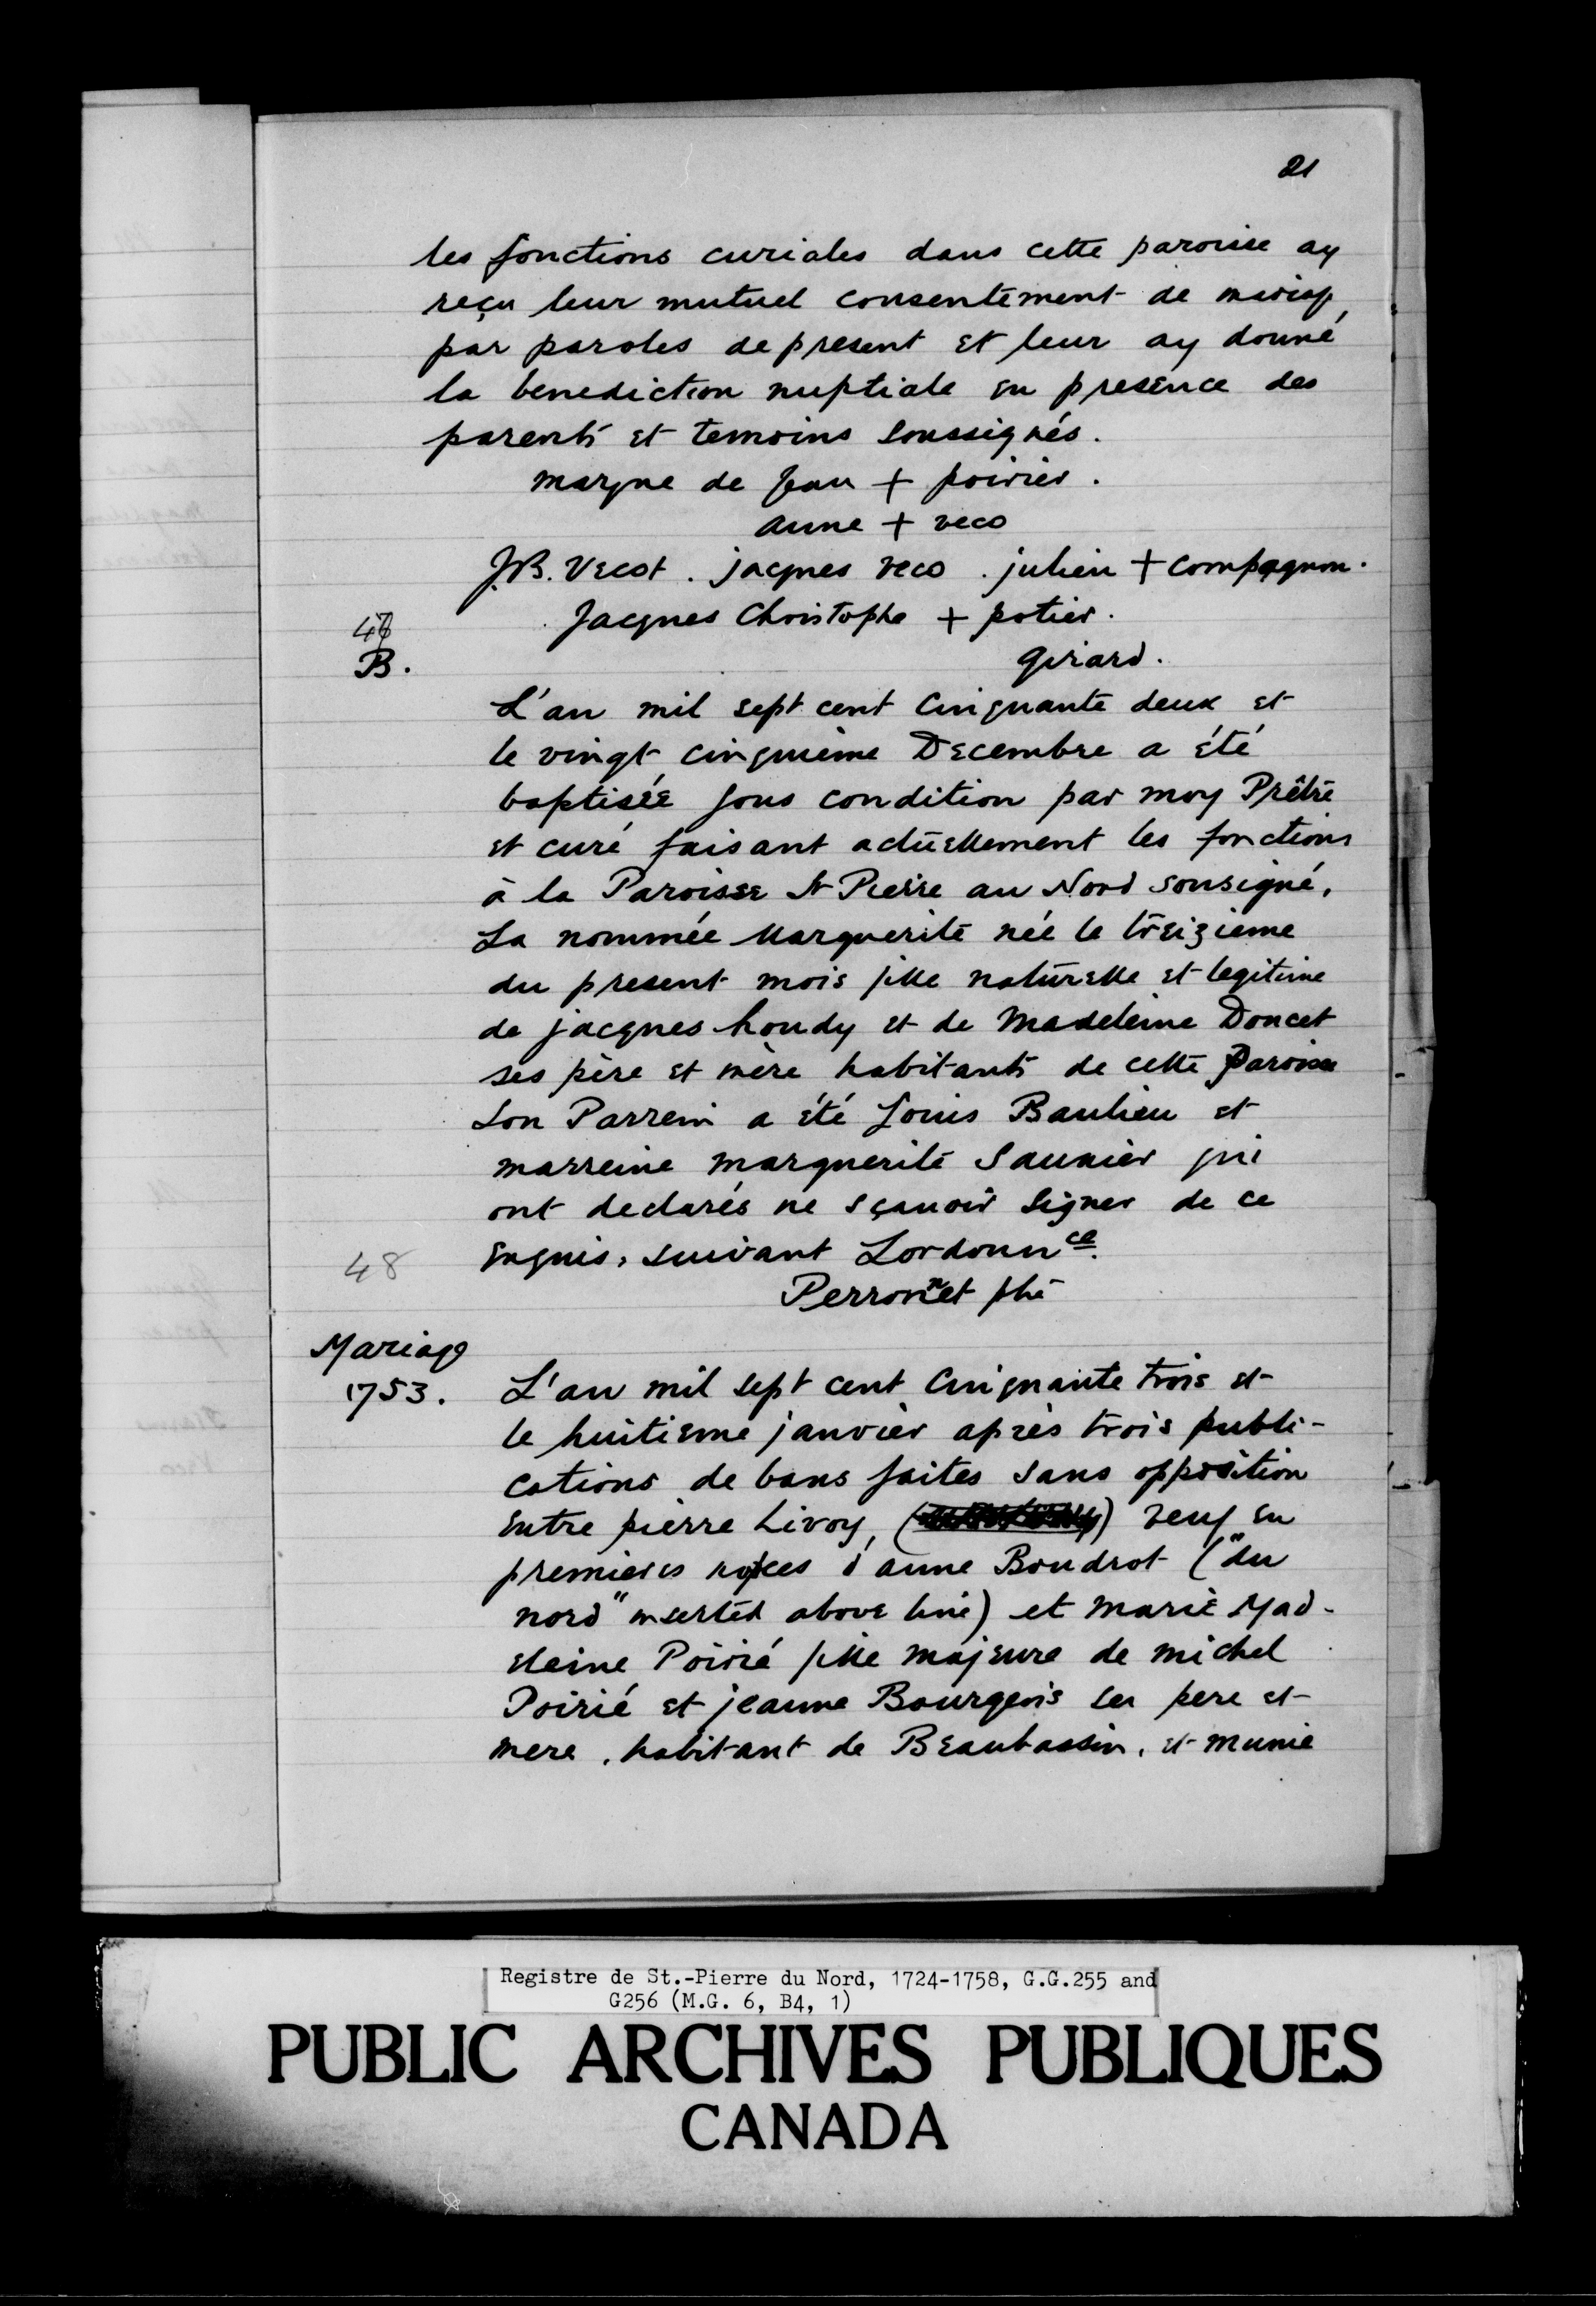 21
les fonctions curiales dans cette paroisse ay
reçu leur mutuel consentement de mariag
par paroles de present et leur ay donné
la benediction nuptiale en presence des
parents et temoins soussignés.
marque de Jean + poirier.
anne + veco
J.B. Vecot. jacques veco. julien + compagnon.
Jacques Christophe + potier.
47
B.
Girard.
L'an mil sept cent cinquante deux et
le vingt cinquième Decembre a été
baptisée sous condition par moy Prêtre
et curé faisant actuellement les fonctions
à la Paroisse St Pierre au Nord sousigné,
La nommée Marguerite née le treizieme
du present mois fille naturelle et legitime
de jacques houdy et de Madeleine Doucet
ses père et mère habitants de cette Paroisse
Son Parrein a été Louis Baulieu et
marreine marguerite Saunier qui
ont declarés ne sçauoir signer de ce
enquis, suivant Lordounce.
48
Perronnet ptre
Mariage
1753.
L'an mil sept cent cinquante trois et
le huitieme janvier après trois publi-
cations de bans faites sans opposition
entre pierre Livoy, () veuf en
premieres noces d'anne Boudrot ("du
nord" inserted above line) et Marie Mad-
eleine Poirié fille majeure de michel
Poirié et jeanne Bourgeois ses pere et
mere, habitant de Beaubassin, et munie
Registre de St.-Pierre du Nord, 1724-1758, G.G.255 and
G256 (M.G. 6, B4, 1)
PUBLIC ARCHIVES PUBLIQUES
CANADA